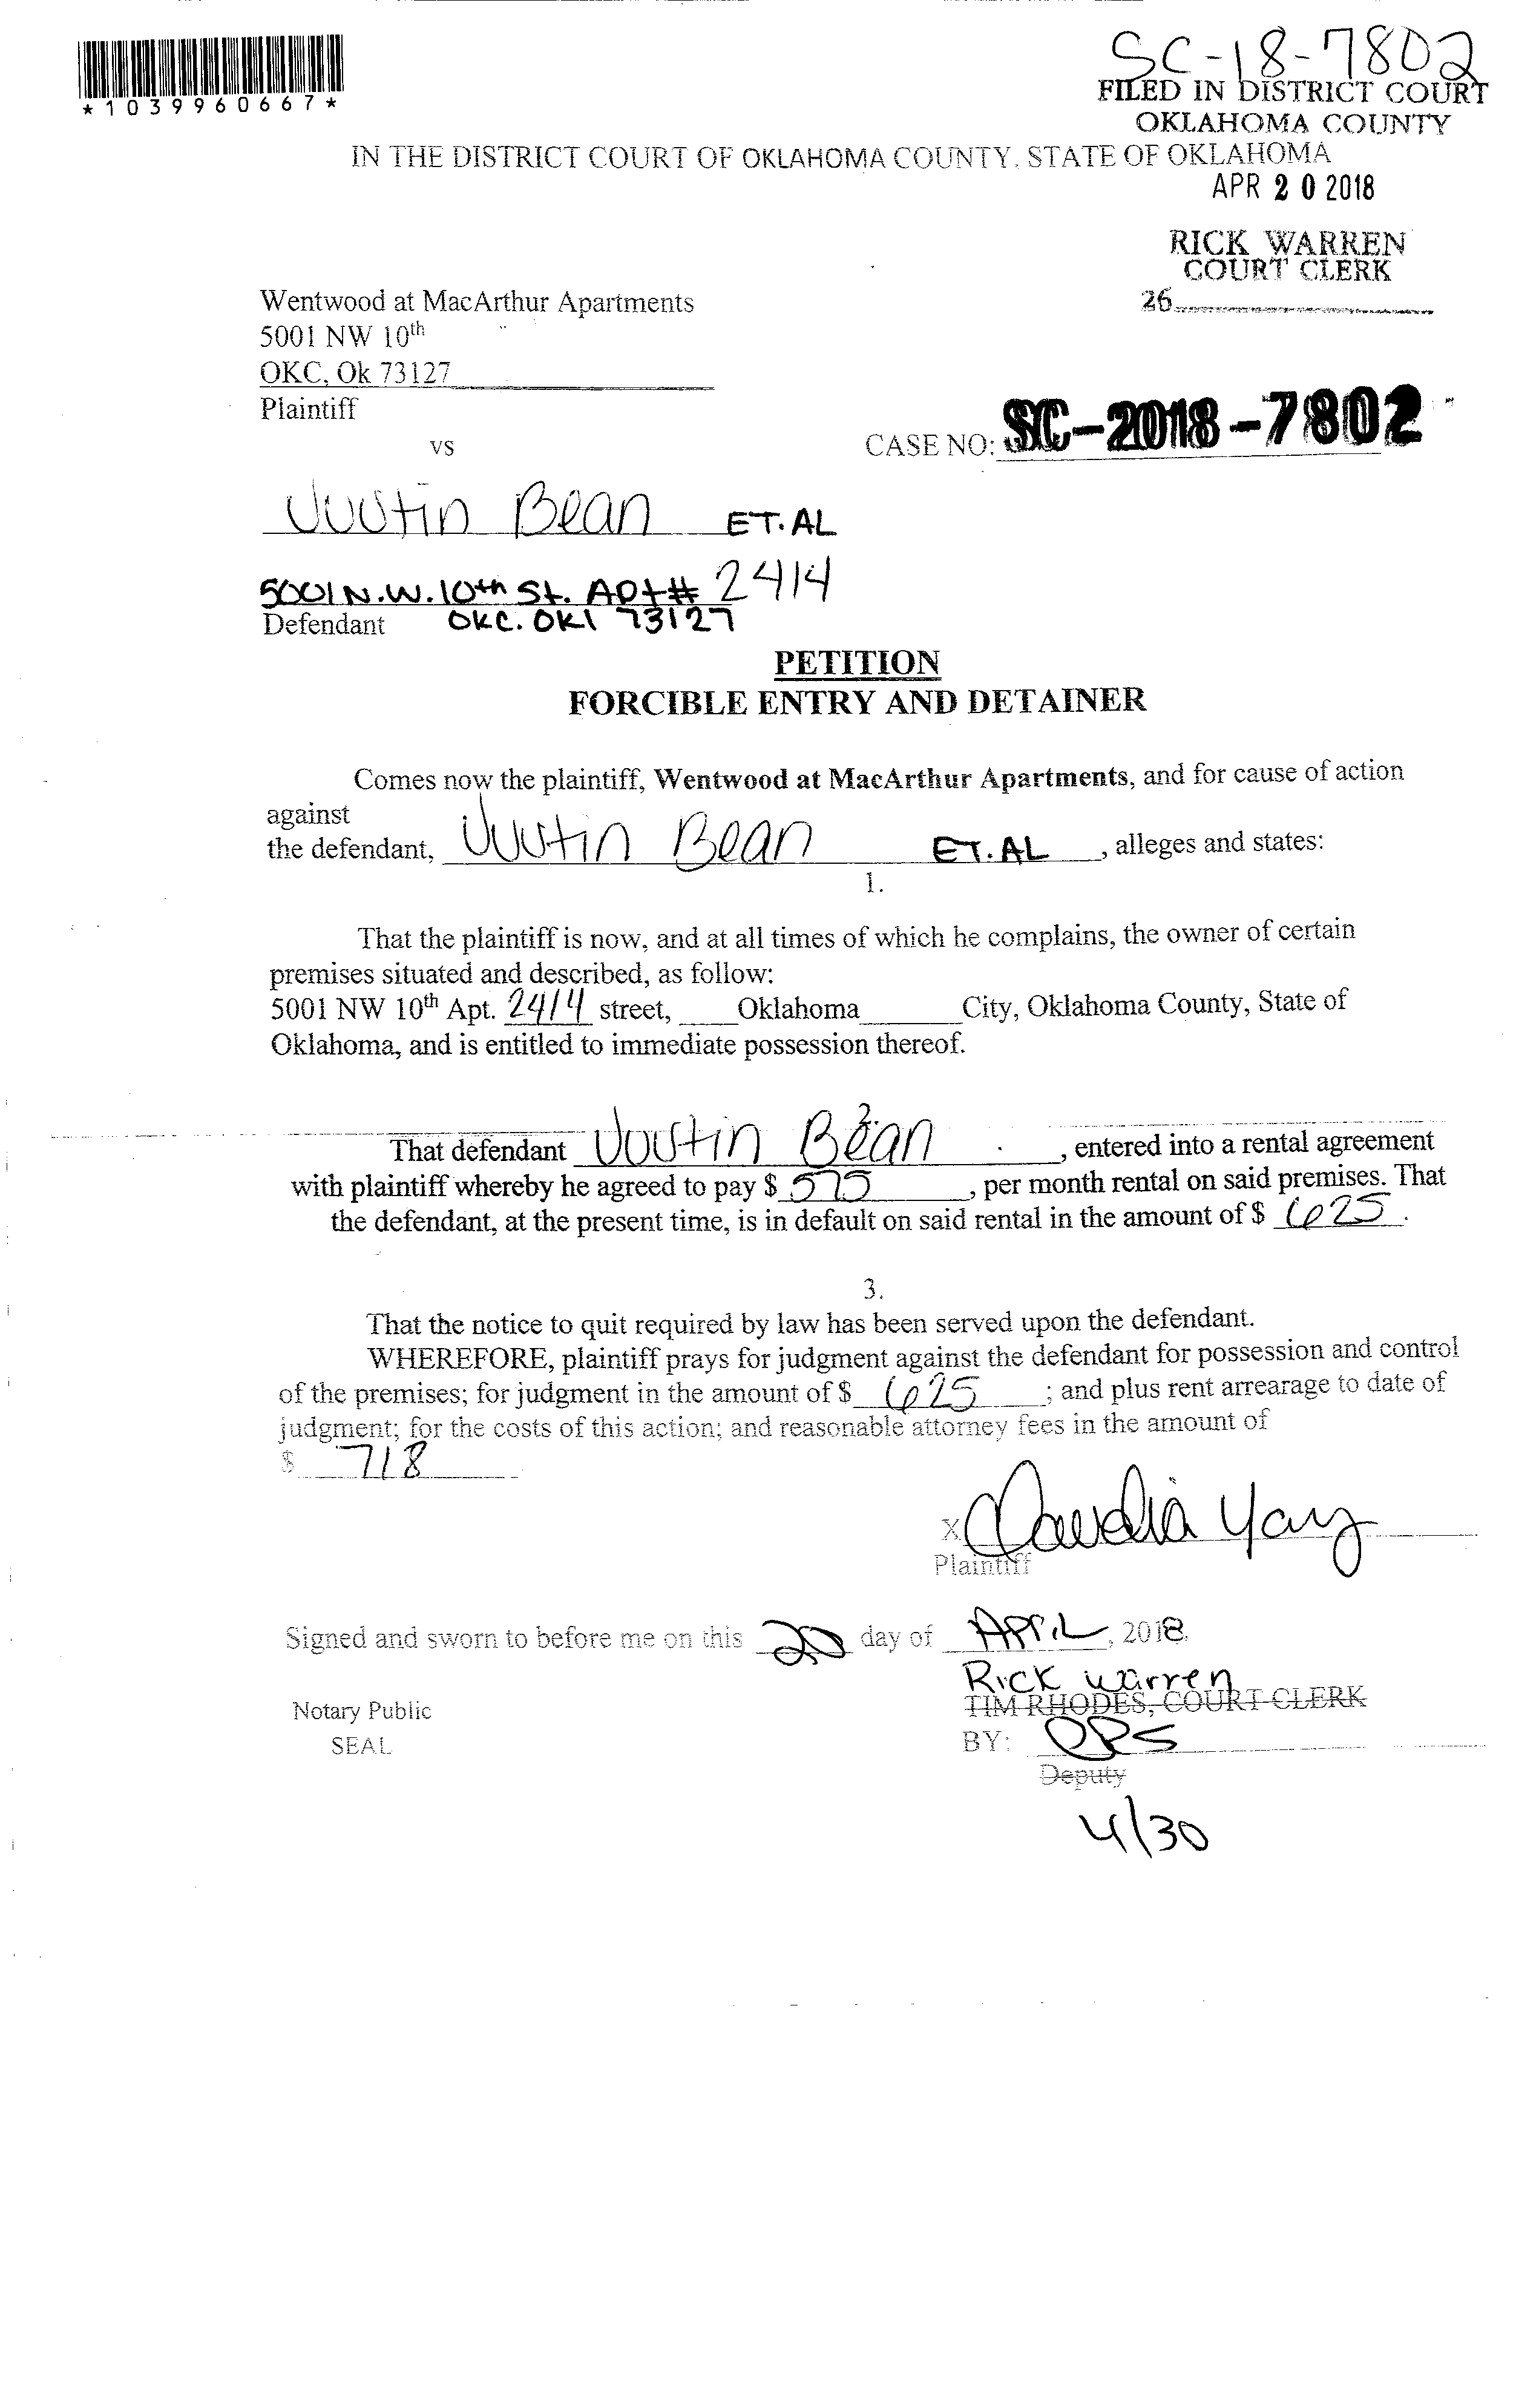 SC-18-7802
*1039960667*
FILED IN DISTRICT COURT
OKLAHOMA COUNTY
IN THE DISTRICT COURT OF OKLAHOMA COUNTY, STATE OF OKLAHOMA
APR 20 2018
RICK WARREN
COURT CLERK
26
Wentwood at MacArthur Apartments
5001 NW 10th
OKC, Ok 73127
Plaintiff
vs
CASE NO: SC-2018-7802
Justin Bean ET.AL
5001 N.W. 10th St. Apt# 2414
Defendant OKC. OKl 73127
PETITION
FORCIBLE ENTRY AND DETAINER
Comes now the plaintiff, Wentwood at MacArthur Apartments, and for cause of action
against
the defendant, Justin Bean ET.AL , alleges and states:
1.
That the plaintiff is now, and at all times of which he complains, the owner of certain
premises situated and described, as follow:
5001 NW 10th Apt. 2414 street, Oklahoma City, Oklahoma County, State of
Oklahoma, and is entitled to immediate possession thereof.
That defendant Justin Bean , entered into a rental agreement
with plaintiff whereby he agreed to pay $ 575 , per month rental on said premises. That
the defendant, at the present time, is in default on said rental in the amount of $ 625 .
3.
That the notice to quit required by law has been served upon the defendant.
WHEREFORE, plaintiff prays for judgment against the defendant for possession and control
of the premises; for judgment in the amount of $ 625 ; and plus rent arrearage to date of
judgment; for the costs of this action; and reasonable attorney fees in the amount of
$ 718
X Claudia
Plaintiff
Signed and sworn to before me on this 20 day of APRIL, 2018.
Rick Warren
Notary Public TIM RHODES, COURT CLERK
SEAL BY:
Deputy
4/30